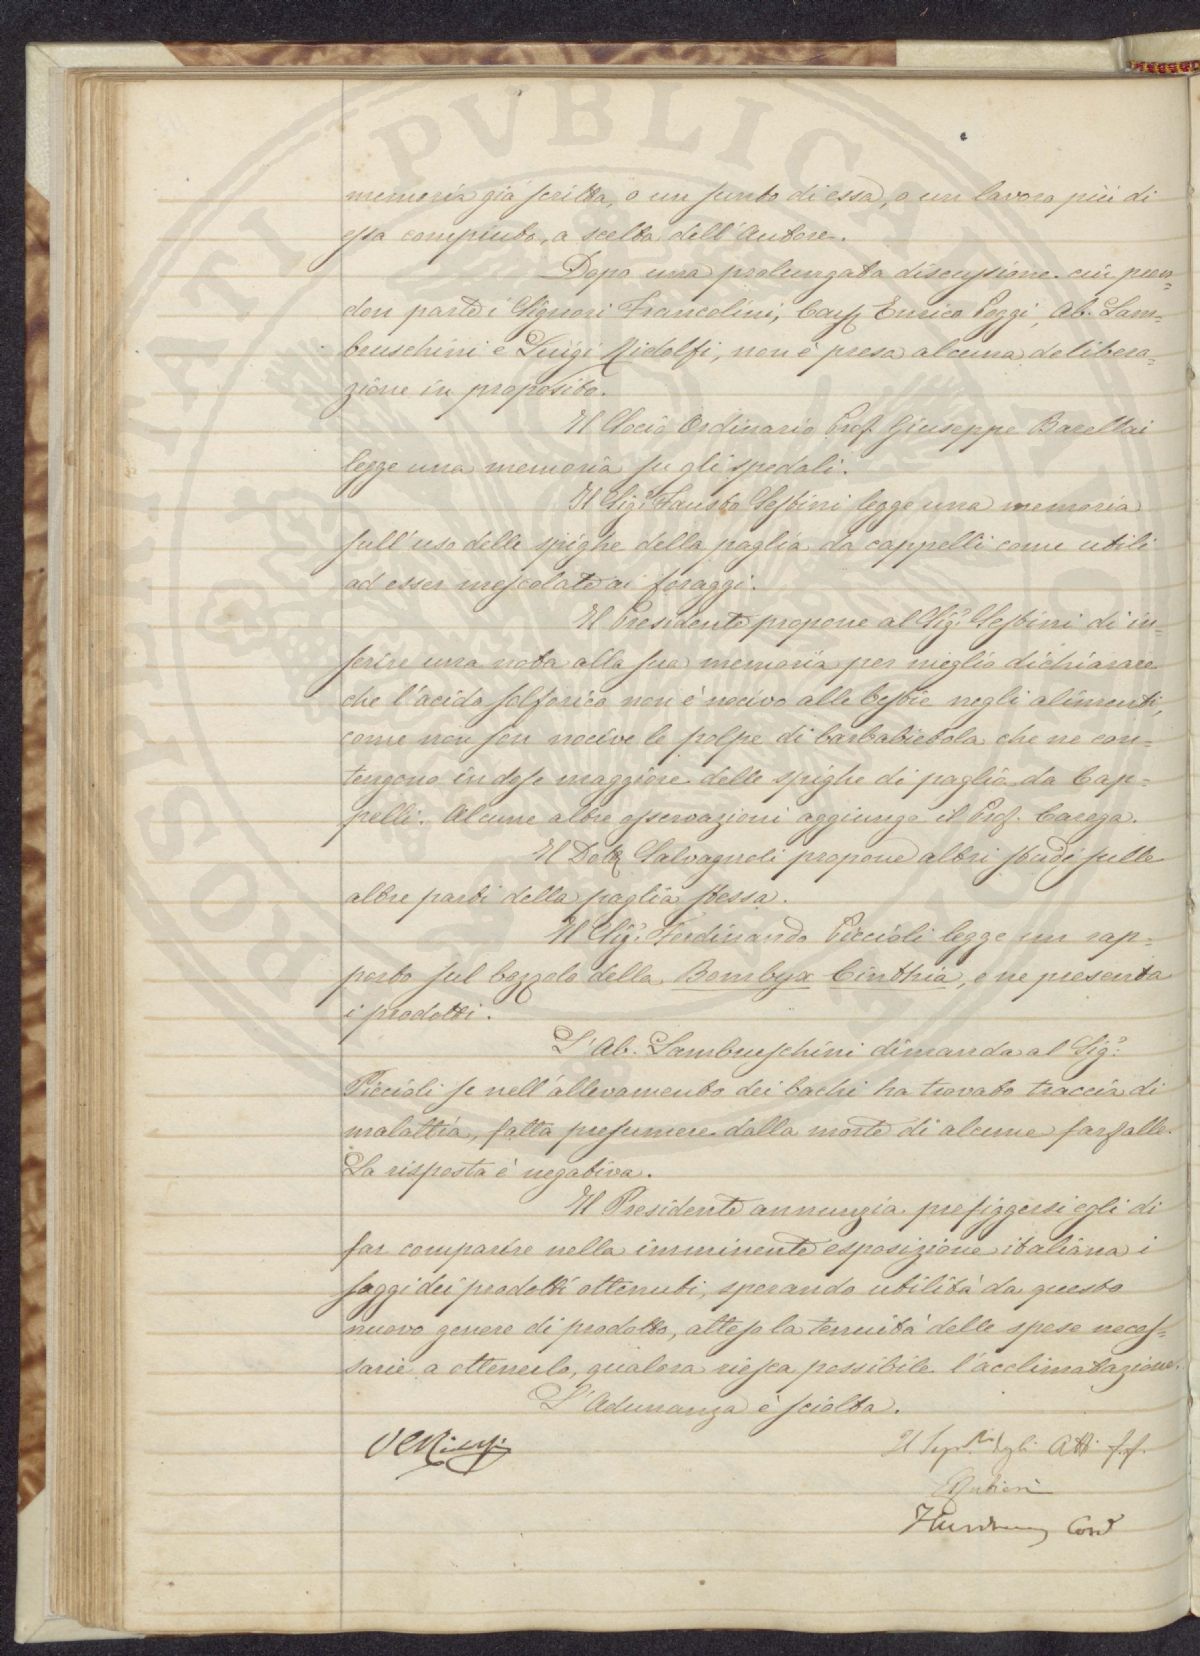 memoria già scritta, o un sunto di essa, o un lavoro più di
essa compiuto, a scelta dell'Autore.
Dopo una prolungata discussione cui pren=
don parte i Signori Francolini, Enrico Poggi, Ab. Lam=
bruschini e Luigi Ridolfi, non è presa alcuna delibera=
zione in proposito.
Il Socio Ordinario Prof. Giuseppe Barellai
legge una memoria su gli spedali.
Il Sigr. Fausto Sestini legge una memoria
sull'uso delle spighe della paglia da cappelli come utili
ad esser mescolate ai foraggi.
Il Presidente propone al Sigr. Sestini di in=
serire una nota alla sua memoria per meglio dichiarare
che l'acido solforico non è nocivo alle bestie negli alimenti,
come non son nocive le polpe di barbabietola che ne con=
tengono in dose maggiore delle spighe di paglia da Cap=
pelli. Alcune altre osservazioni aggiunge il Prof. Carega.
Il Dott. Salvagnoli propone altri studj sulle
altre parti della paglia stessa.
Il Sigr. Ferdinando Piccioli legge un rap=
porto sul bozzolo della Bombyx Cinthia, e ne presenta
i prodotti.
L'Ab. Lambruschini dimanda al Sigr.
Piccioli se nell'allevamento dei bachi ha trovato traccia di
malattia, fatta presumere dalla morte di alcune farfalle.
La risposta è negativa.
Il Presidente annunzia prefiggersi egli di
far comparire nella imminente esposizione italiana i
saggi dei prodotti ottenuti, sperando utilità da questo
nuovo genere di prodotto, attesa la tenuità delle spese neces=
sarie a ottenerlo, qualora riesca possibile l'acclimatazione.
L'Adunanza è sciolta.
Il Segr. degli Atti f.f.
Rubieri